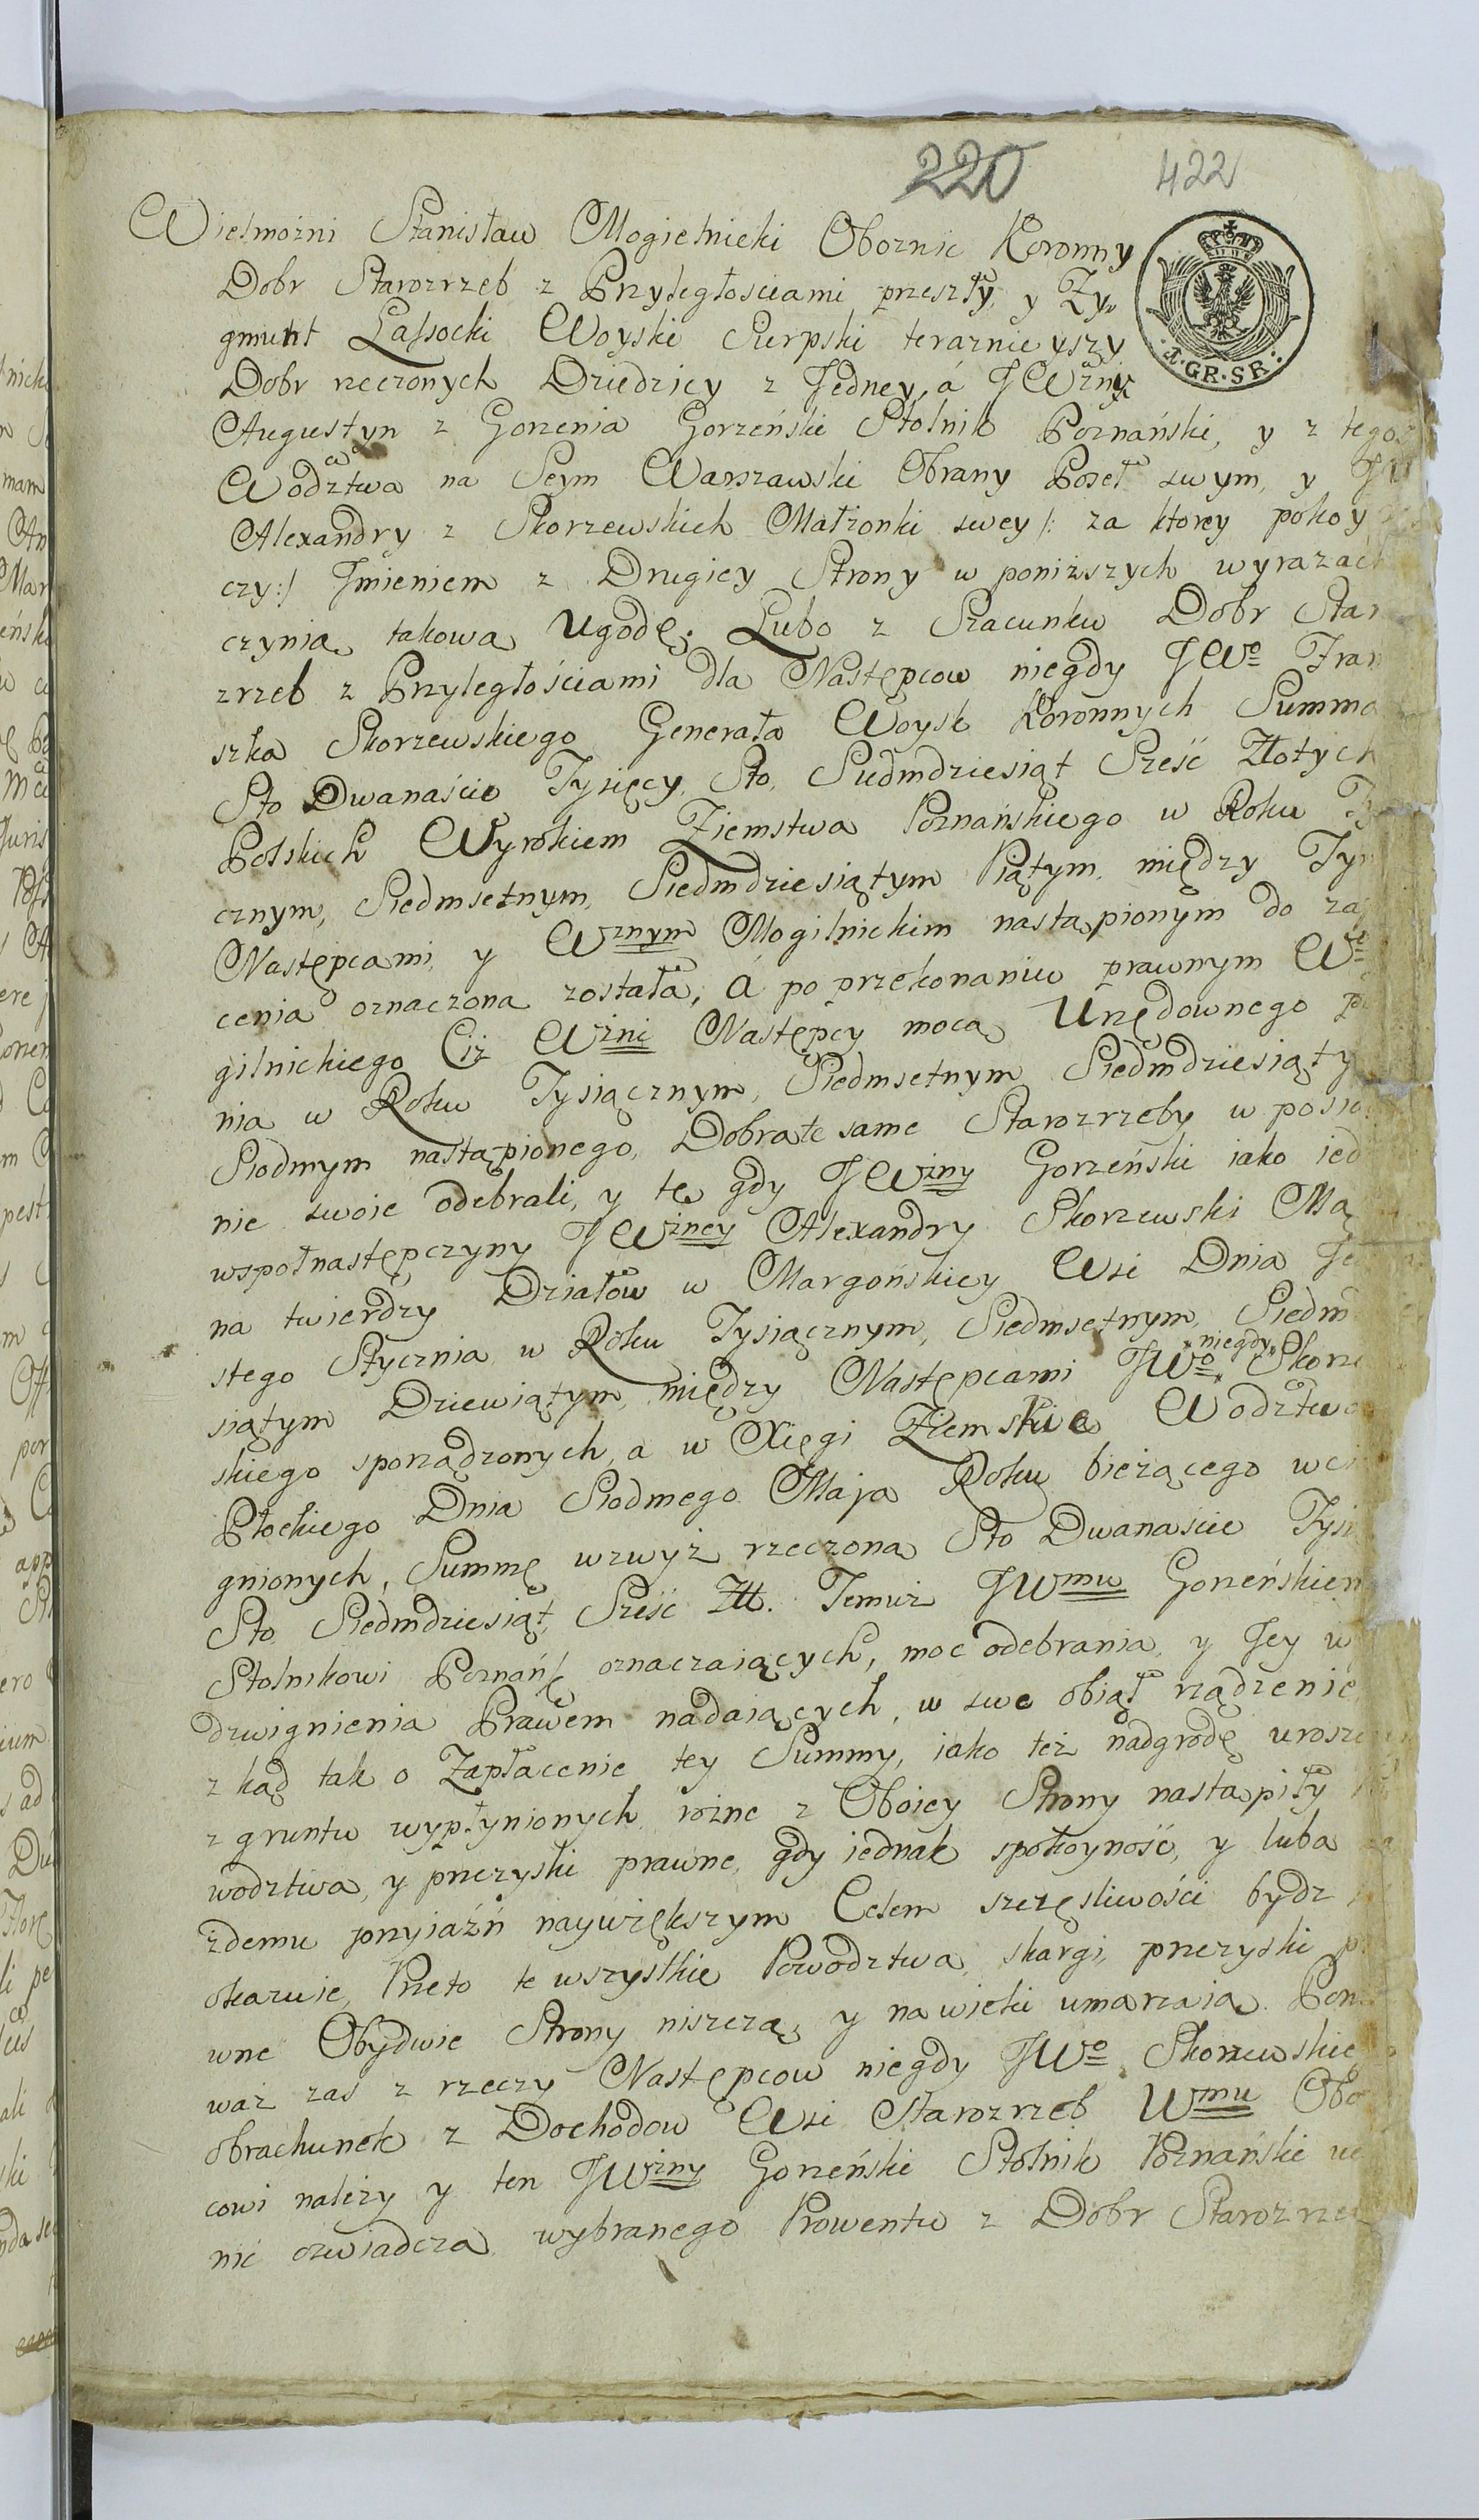 220 422
Wielmożni Stanisław Mogielnicki Oboznic Koronny
Dobr Starozrzeb z Przyległościami przeszły, y Zy„
gmunt Lassocki Woyski Sierpski teraznieyszy
Dobr rzeczonych Dziedzicy z Jedney, á JWżny
Augustyn z Gorzenia Gorzeński Stolnik Poznański, y z tegoż
Wodztwa na Seym Warszawski Obrany Poseł swym, y
Alexandry z Skorzewskich Małżonki swey /: za ktorey pokoy
czy :/ Jmieniem z Drugiey Strony w poniższych wyrazach
czynią takową Ugodę. Lubo z Szacunku Dobr Star
zrzeb z Przyległościami dla Następcow niegdy JWo Fran
szka Skorzewskiego Generała Woysk Koronnych Summa
Sto Dwanaście Tysięcy, Sto, Siedmdziesiąt Sześć Złotych
Polskich Wyrokiem Ziemstwa Poznańskiego w Roku Ty
cznym, Siedmsetnym, Siedmdziesiątym Piątym, między Tym
Następcami, y Wżnym Mogilnickim nastąpionym do zap
cenia oznaczona została, á po przekonaniu prawnym W
gilnickiego Ciż Wżni Następcy mocą Urzędownego
nia w Roku Tysiącznym, Siedmsetnym Siedmdziesiąty
Siodmym nastąpionego, Dobra te same Starozrzeby w posio
nie swoie odebrali, y te gdy JWżny Gorzeński iako ied
wspołnastępczyny JWżney Alexandry Skorzewski Mą
na twierdzy Działow w Margońskiey Wsi Dnia Je
stego Stycznia w Roku Tysiącznym, Siedmsetnym, Siedm
siątym Dziewiątym, między Następcami JWo „niegdy„ Skorze
skiego sporządzonych, a w Xięgi Ziemskie Wodztwa
Płockiego Dnia Siodmego Maja Roku bieżącego wci
gnionych, Summę wzwyż rzeczoną Sto Dwanaście Tysi
Sto Siedmdziesiąt, Sześć Złł. Temuż JWmu Gorzeńskiem
Stolnikowi Poznańs oznaczaiących, moc odebrania, y Jey w
dzwignienia Prawem nadaiących, w swe obiął rządzenie,
z kąd tak o Zapłacenie tey Summy, iako też nadgrodę urosz
z gruntu wypłynionych, rożne z Oboiey Strony nastąpiły
wodztwa, y przezyski prawne, gdy iednak spokoyność, y luba
żdemu przyiaźń naywiększym Celem szczęsliwości bydz
okazuie, Przeto te wszystkie Powodztwa, skargi, przezyski p
wne Obydwie Strony niszczą, y na wieki umarzaią. Poni
waż zas z rzeczy Następcow niegdy JWo Skorzewskie
obrachunek z Dochodow Wsi Starozrzeb Wmu Obo
cowi należy y ten JWżny Gorzeński Stolnik Poznański
nić ozwiadcza, wybranego Prowentu z Dobr Starozrze
1.GR.SR.